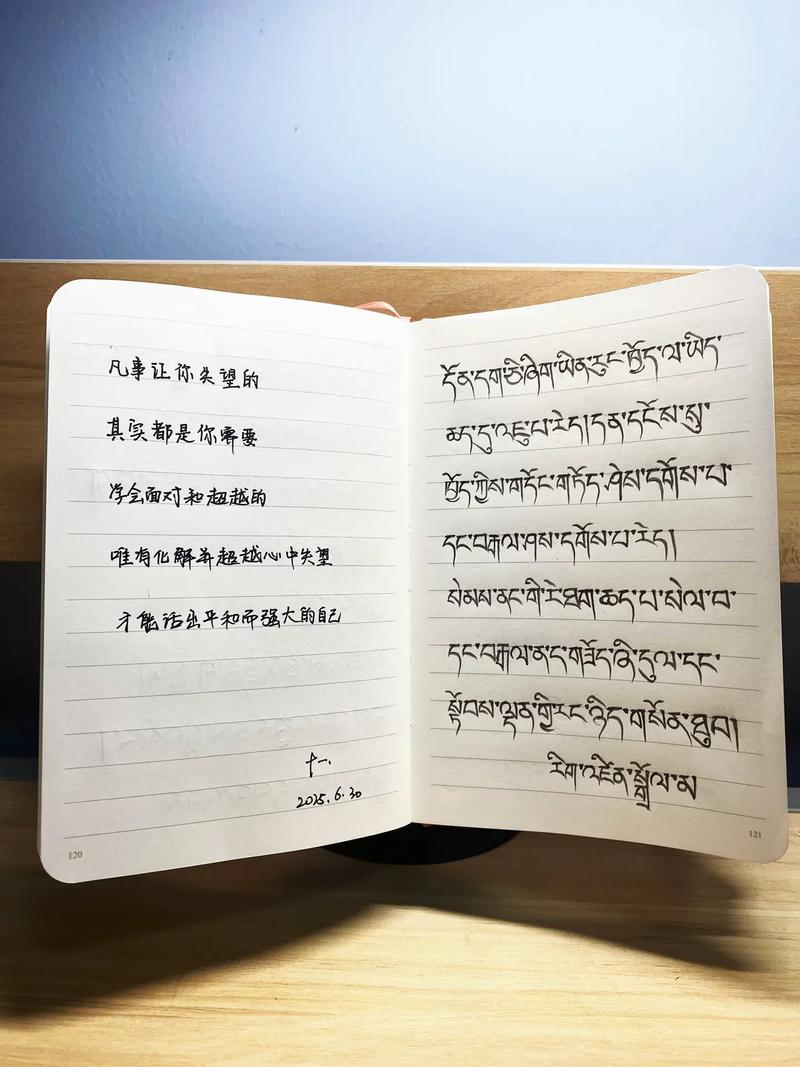 凡事让你失望的
其实都是你需要
学会面对和超越的
唯有化解并超越心中失望
才能活出平和而强大的自己
十一.
2025.6.30
120
དོན་དག་ཅི་ཞིག་ཡིན་རུང་ཁྱོད་ལ་ཡིད་
ཆད་དུ་འཇུ་པ་རེད། དན་དངོས་སུ་
ཁྱོད་ཀྱིས་གདོང་གཏོད་ཤེས་དགོས་པ་
དང་བརྒལ་ཤས་དགོས་པ་རེད།
སེམས་ནང་གི་རེ་ཐག་ཆད་པ་སེལ་བ་
དང་བརྒལ་ན་ད་གཟོད་ཞི་དུལ་དང་
སྟོབས་ལྡན་གྱི་རང་ཉིད་གསོན་ཐུབ།
རིག་འཛིན་སྒྲོལ་མ
121